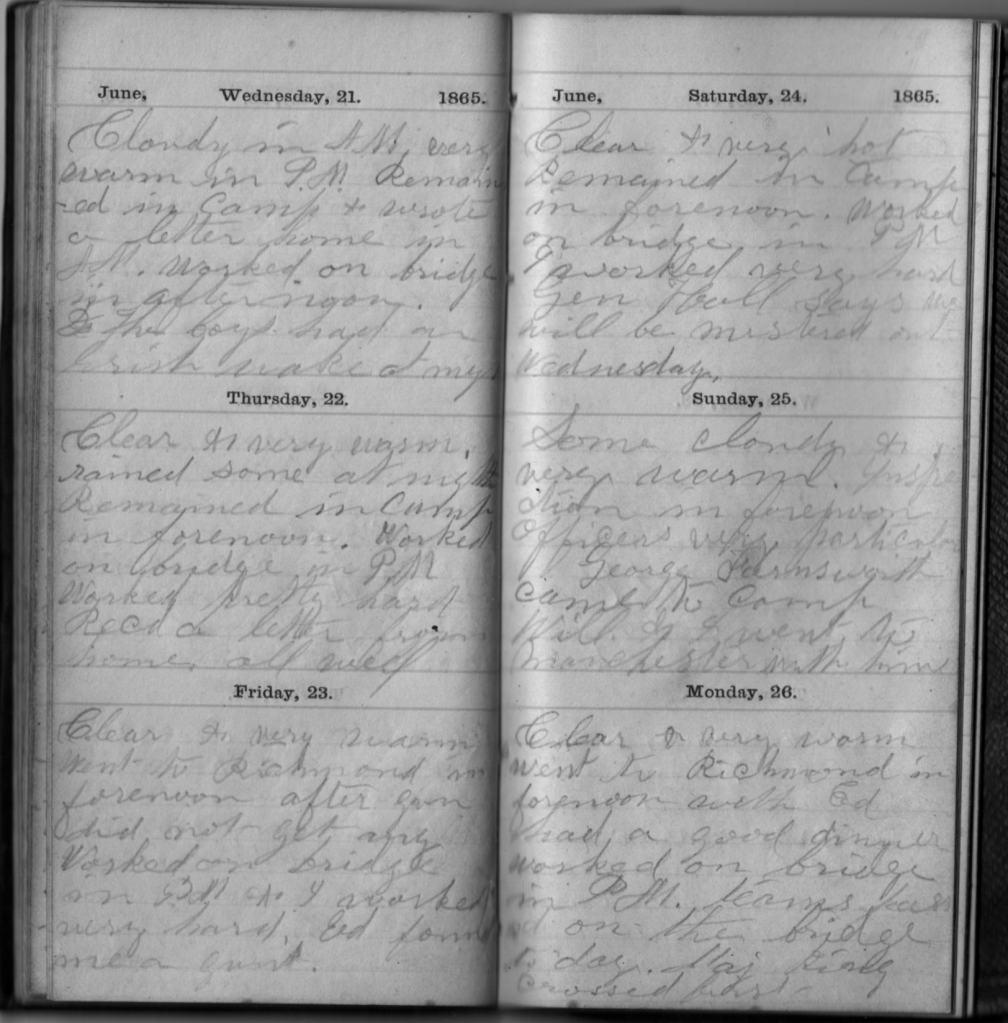 June, Wednesday, 21. 1865.
Cloudy in A.M. very
warm in P.M. Remain
ed in Camp & wrote
a letter home in
A.M. Worked on bridge
in afternoon.
The boys had an
Irish wake at nigh
Thursday, 22.
Clear & very warm,
rained some at night
Remained in Camp
in forenoon. Worked
on bridge in P.M
Worked pretty hard
Recd a letter from
home, all well
Friday, 23.
Clear & very warm
Went to Richmond in
forenoon after gun
did not get any
Worked on bridge
in P.M & I worked
very hard. Ed found
me a gun.
June, Saturday, 24. 1865.
Clear & very hot
Remained in Camp
in forenoon. Worked
on bridge in P M
I worked very hard
Gen Hall says we
will be mustered out
Wednesday.
Sunday, 25.
Some cloudy &
very warm. Inspe
ction in forenoon
Officers very particular
George Farnsworth
came to Camp
Will & I went to
Manchester with him
Monday, 26.
Clear & very warm
went to Richmond in
forenoon with Ed
had a good dinner
worked on bridge
in P.M. teams pass
ed on the bridge
to day. Maj
crossed first